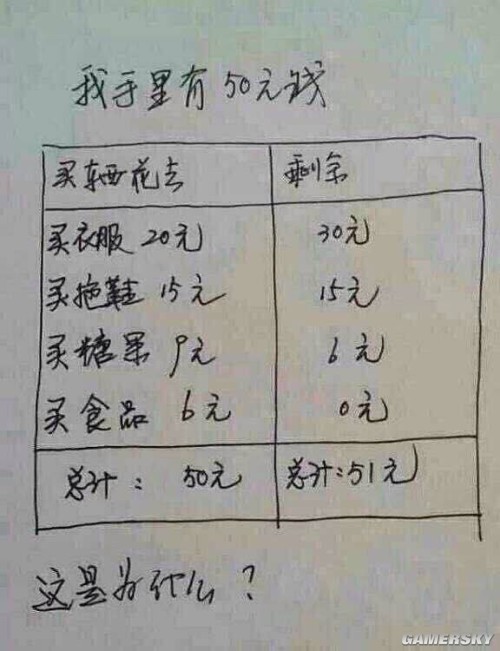 我手里有50元钱
买东西花去 剩余
买衣服 20元 30元
买拖鞋 15元 15元
买糖果 9元 6元
买食品 6元 0元
总计: 50元 总计:51元
这是为什么?
GAMERSKY